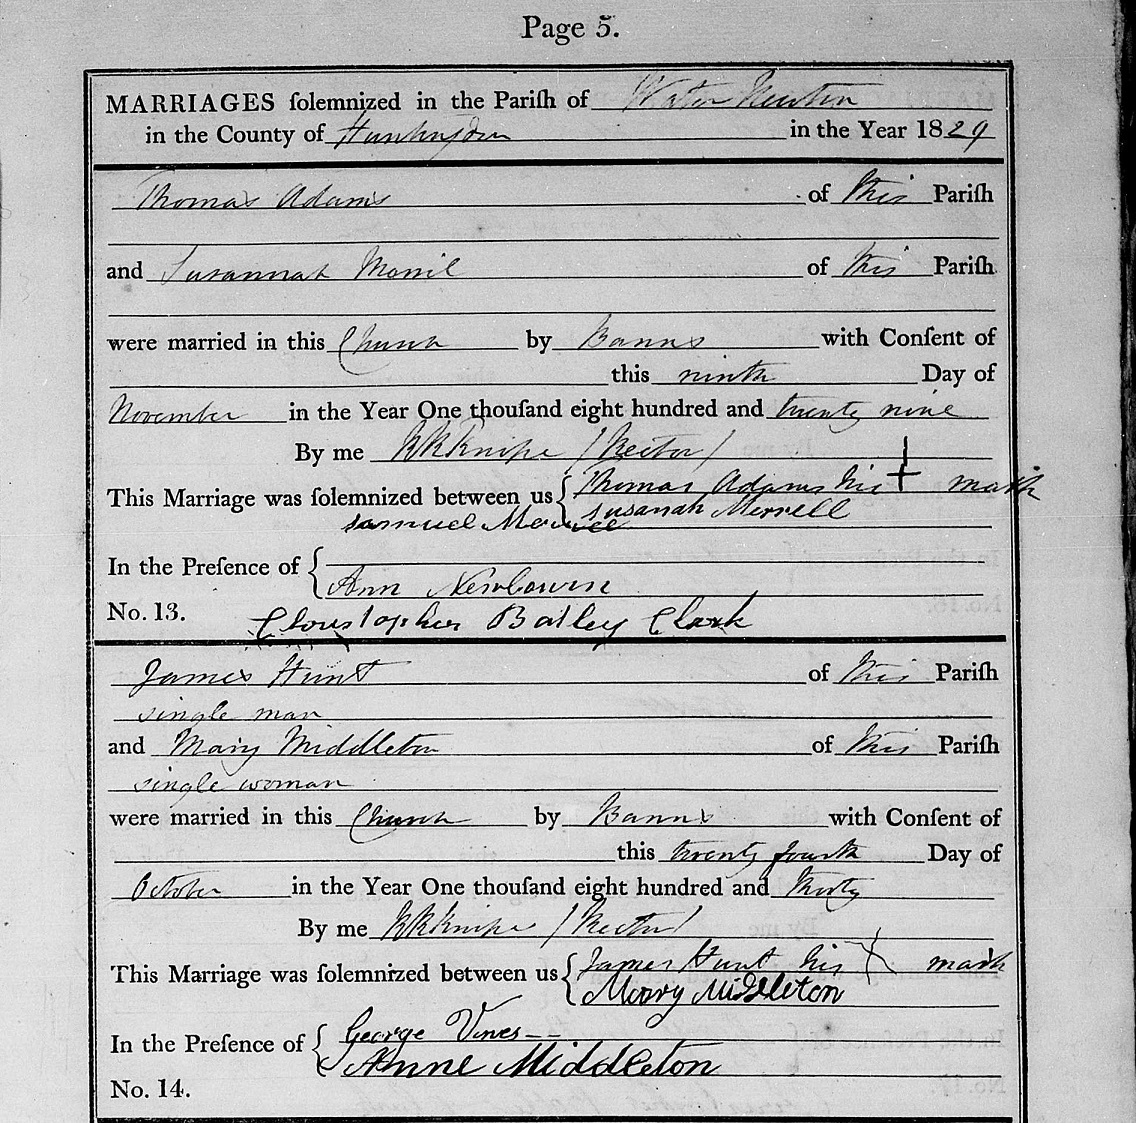 Page 5.
MARRIAGES ſolemnized in the Pariſh of Water Newton
in the County of Huntingdon in the Year 1829
Thomas Adams of this Pariſh
and Susannah Morril of this Pariſh
were married in this Church by Banns with Conſent of
this ninth Day of
November in the Year One thouſand eight hundred and twenty nine
By me RR Knipe /Rector/
This Marriage was ſolemnized between us { Thomas Adams his + mark
Susanah Merrell
Samuel
In the Preſence of {
Ann Newbourn
No. 13.
Christopher Batley Clark
James Hunt of this Pariſh
single man
and Mary Middleton of this Pariſh
single woman
were married in this Church by Banns with Conſent of
this twenty fourth Day of
October in the Year One thouſand eight hundred and thirty
By me RR Knipe /Rector/
This Marriage was ſolemnized between us { James Hunt his X mark
Mary Middleton
In the Preſence of { George Vines
Anne Middleton
No. 14.